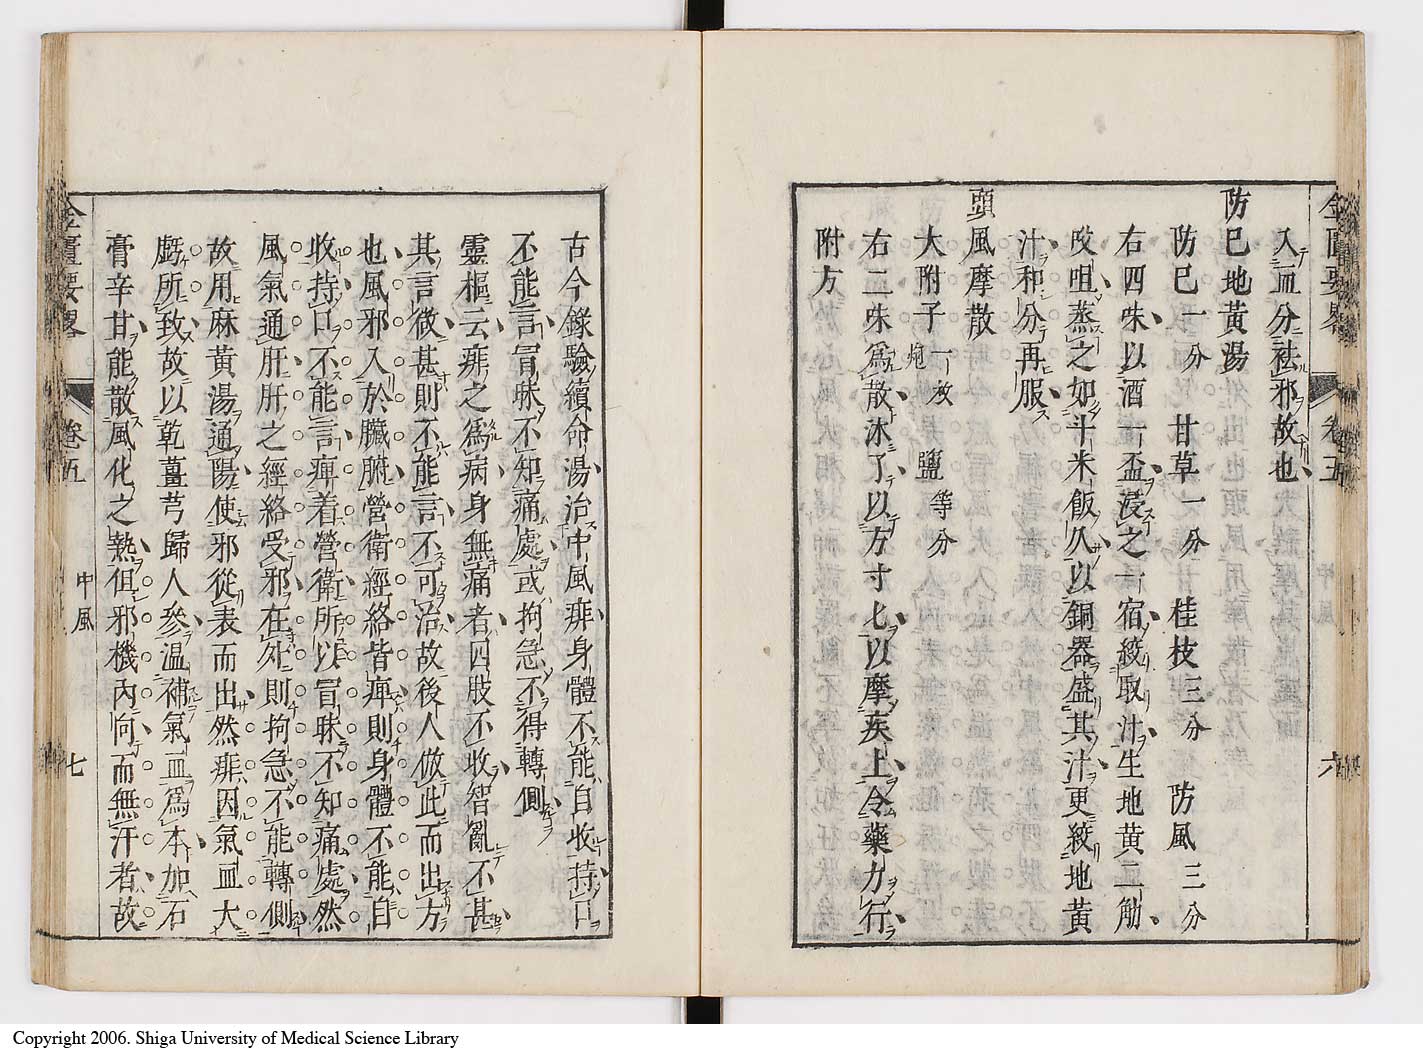 金匱要畧 卷五 中風 六
入血分祛邪故也
防己地黃湯
防己一分 甘草一分 桂枝三分 防風三分
右四味以酒一盃浸之一宿絞取汁生地黄二觔
㕮咀蒸之如斗米飯久以銅器盛其汁更絞地黄
汁和分再服
頭風摩散
大附子一枚炮 鹽等分
右二味爲散沐了以方寸匕以摩疾上令藥力行
附方
古今錄驗續命湯治中風痱身體不能自收持口
不能言冐昧不知痛處或拘急不得轉側
靈樞云痱之爲病身無痛者四肢不收智亂不甚
其言微甚則不能言不可治故後人倣此而出方
也風邪入於臟腑營衛經絡皆痺則身體不能自
收持口不能言痺着營衛所以冐昧不知痛處然
風氣通肝肝之經絡受邪在外則拘急不能轉側
故用麻黄湯通陽使邪從表而出然痱因氣血大
虧所致故以乾薑芎歸人參溫補氣血爲本加石
膏辛甘能散風化之熱但邪機內向而無汗者故
金匱要畧 卷五 中風 七
Copyright 2006. Shiga University of Medical Science Library